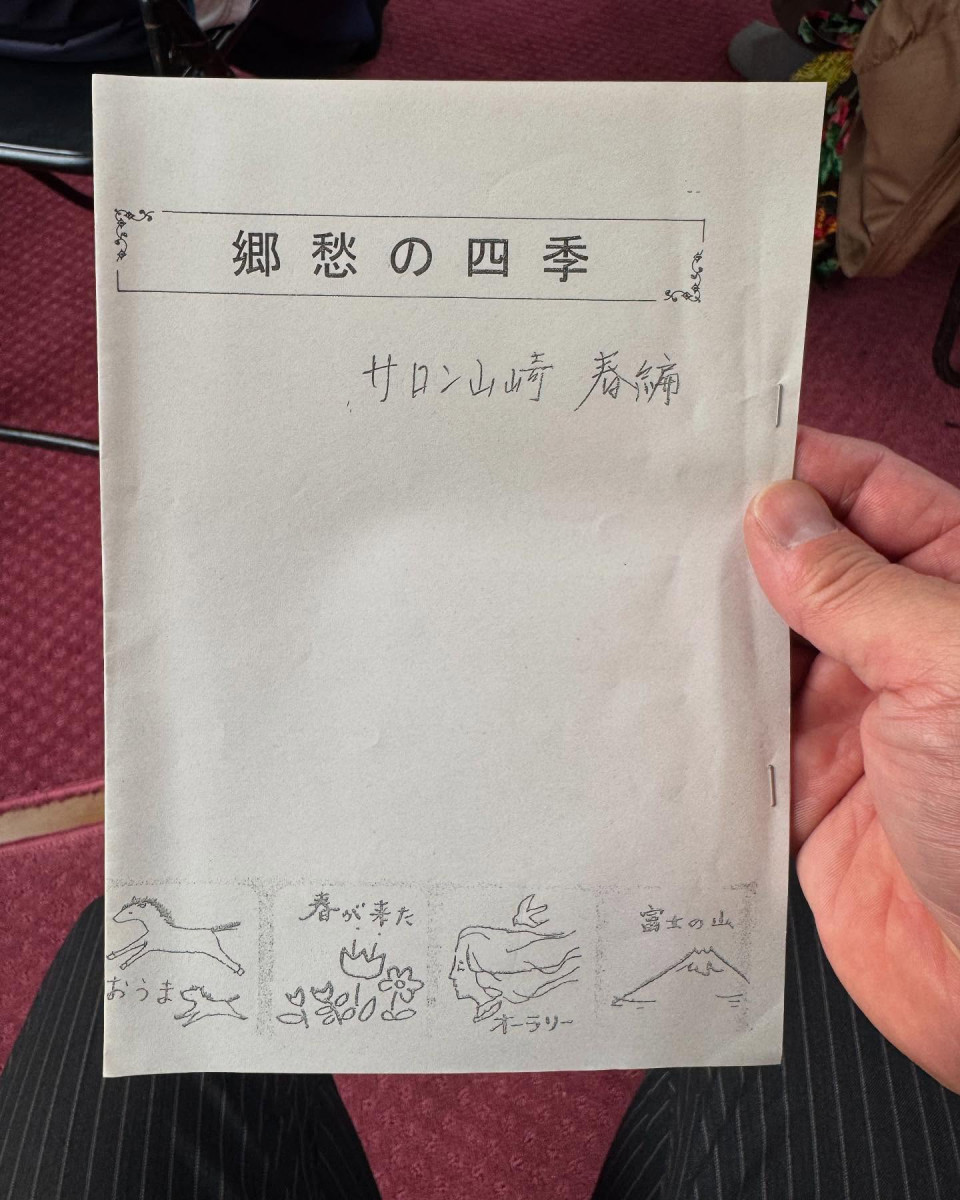 郷愁の四季
サロン山崎 春編
おうま
春が来た
オーラリー
富士の山